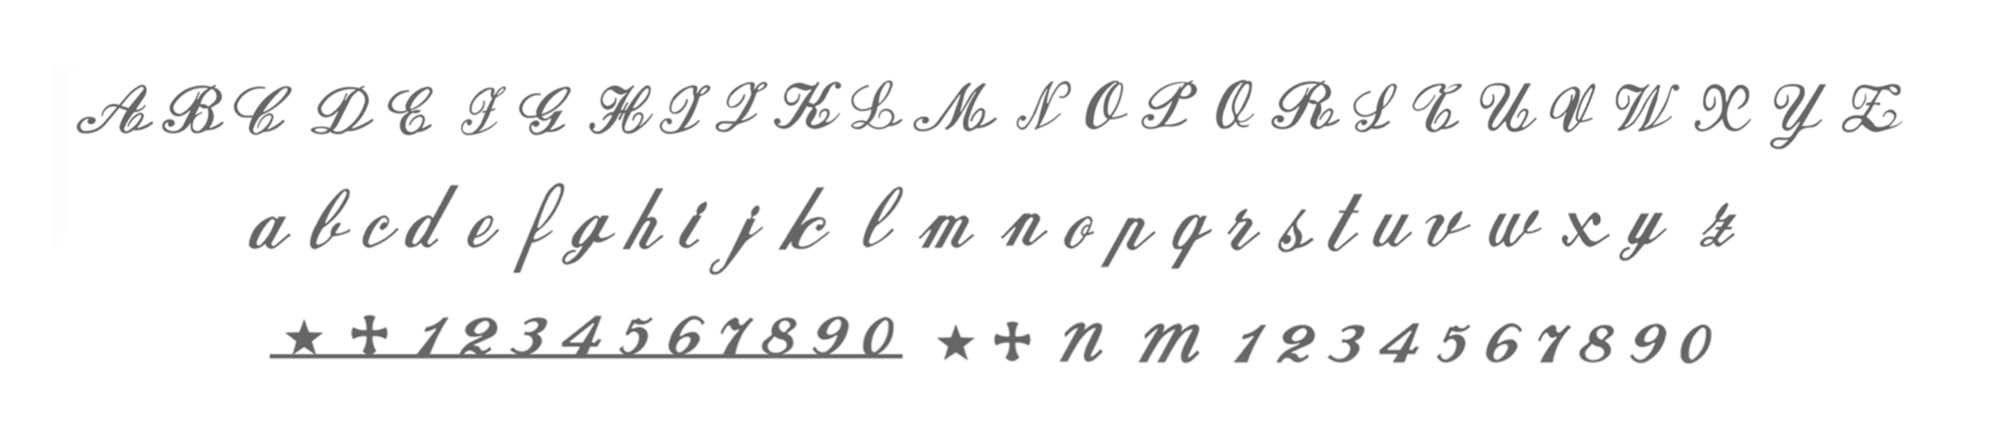 A B C D E F G H I J K L M N O P Q R S T U V W X Y Z
a b c d e f g h i j k l m n o p q r s t u v w x y z
★ ✠ 1 2 3 4 5 6 7 8 9 0 ★ ✠ n m 1 2 3 4 5 6 7 8 9 0